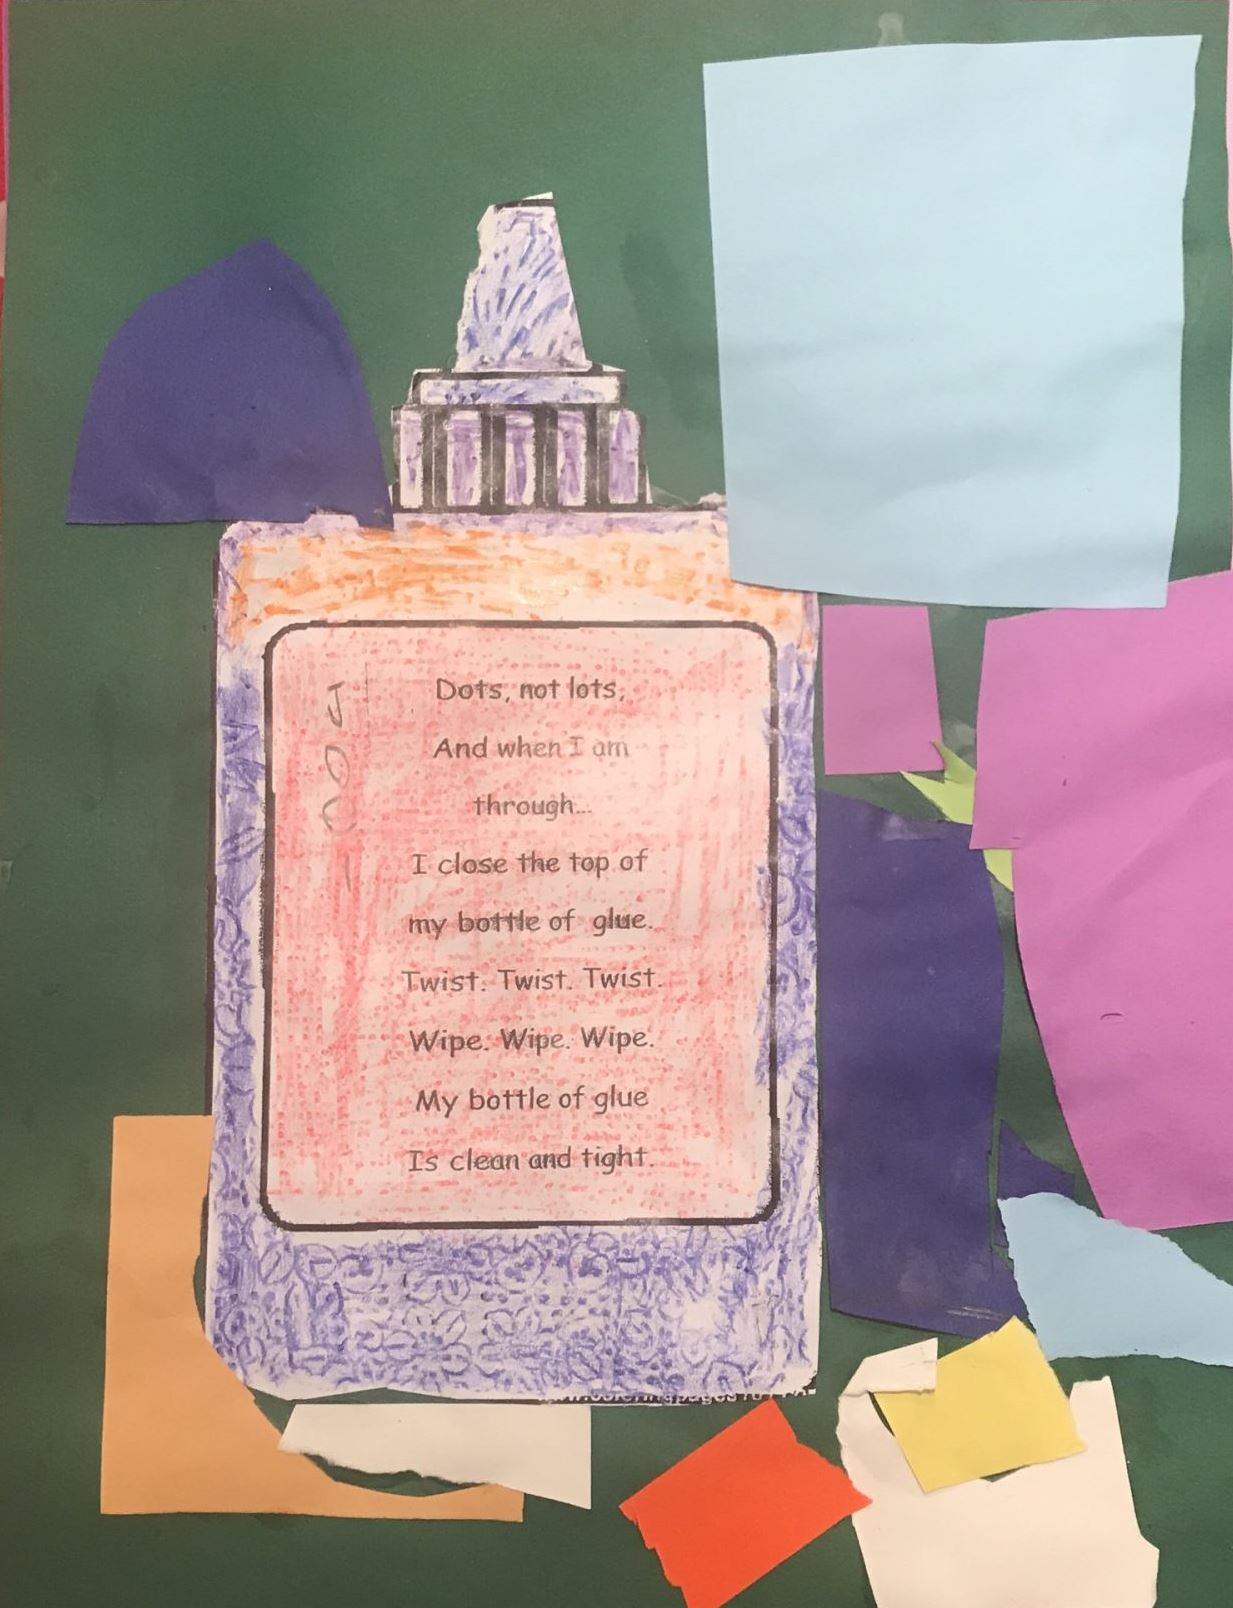 Dots, not lots,
And when I am
through...
I close the top of
my bottle of glue.
Twist. Twist. Twist.
Wipe. Wipe. Wipe.
My bottle of glue
Is clean and tight.